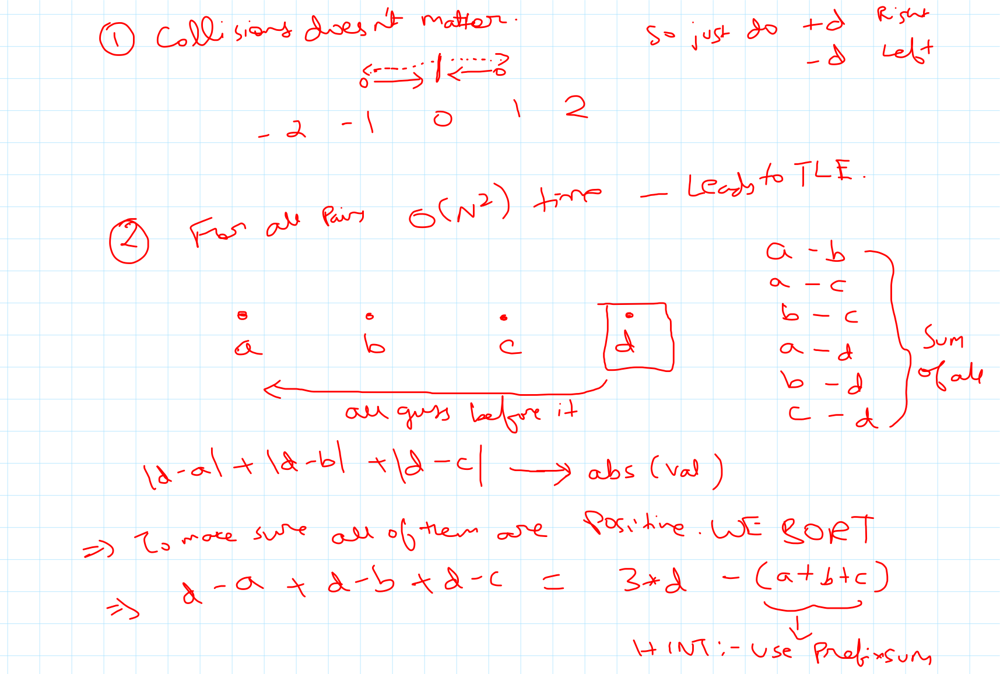 ① Collisions doesn't matter.
So just do +d Right
-d Left
-2 -1 0 1 2
② For all Pairs O(N²) time — Leads to TLE.
a - b
a - c
b - c
a - d
b - d
c - d
Sum
of all
a b c d
all guys before it
|d-a| + |d-b| + |d-c| → abs(val)
⇒ To make sure all of them are Positive. WE SORT
⇒ d-a + d-b + d-c = 3*d - (a+b+c)
HINT:- use Prefixsum